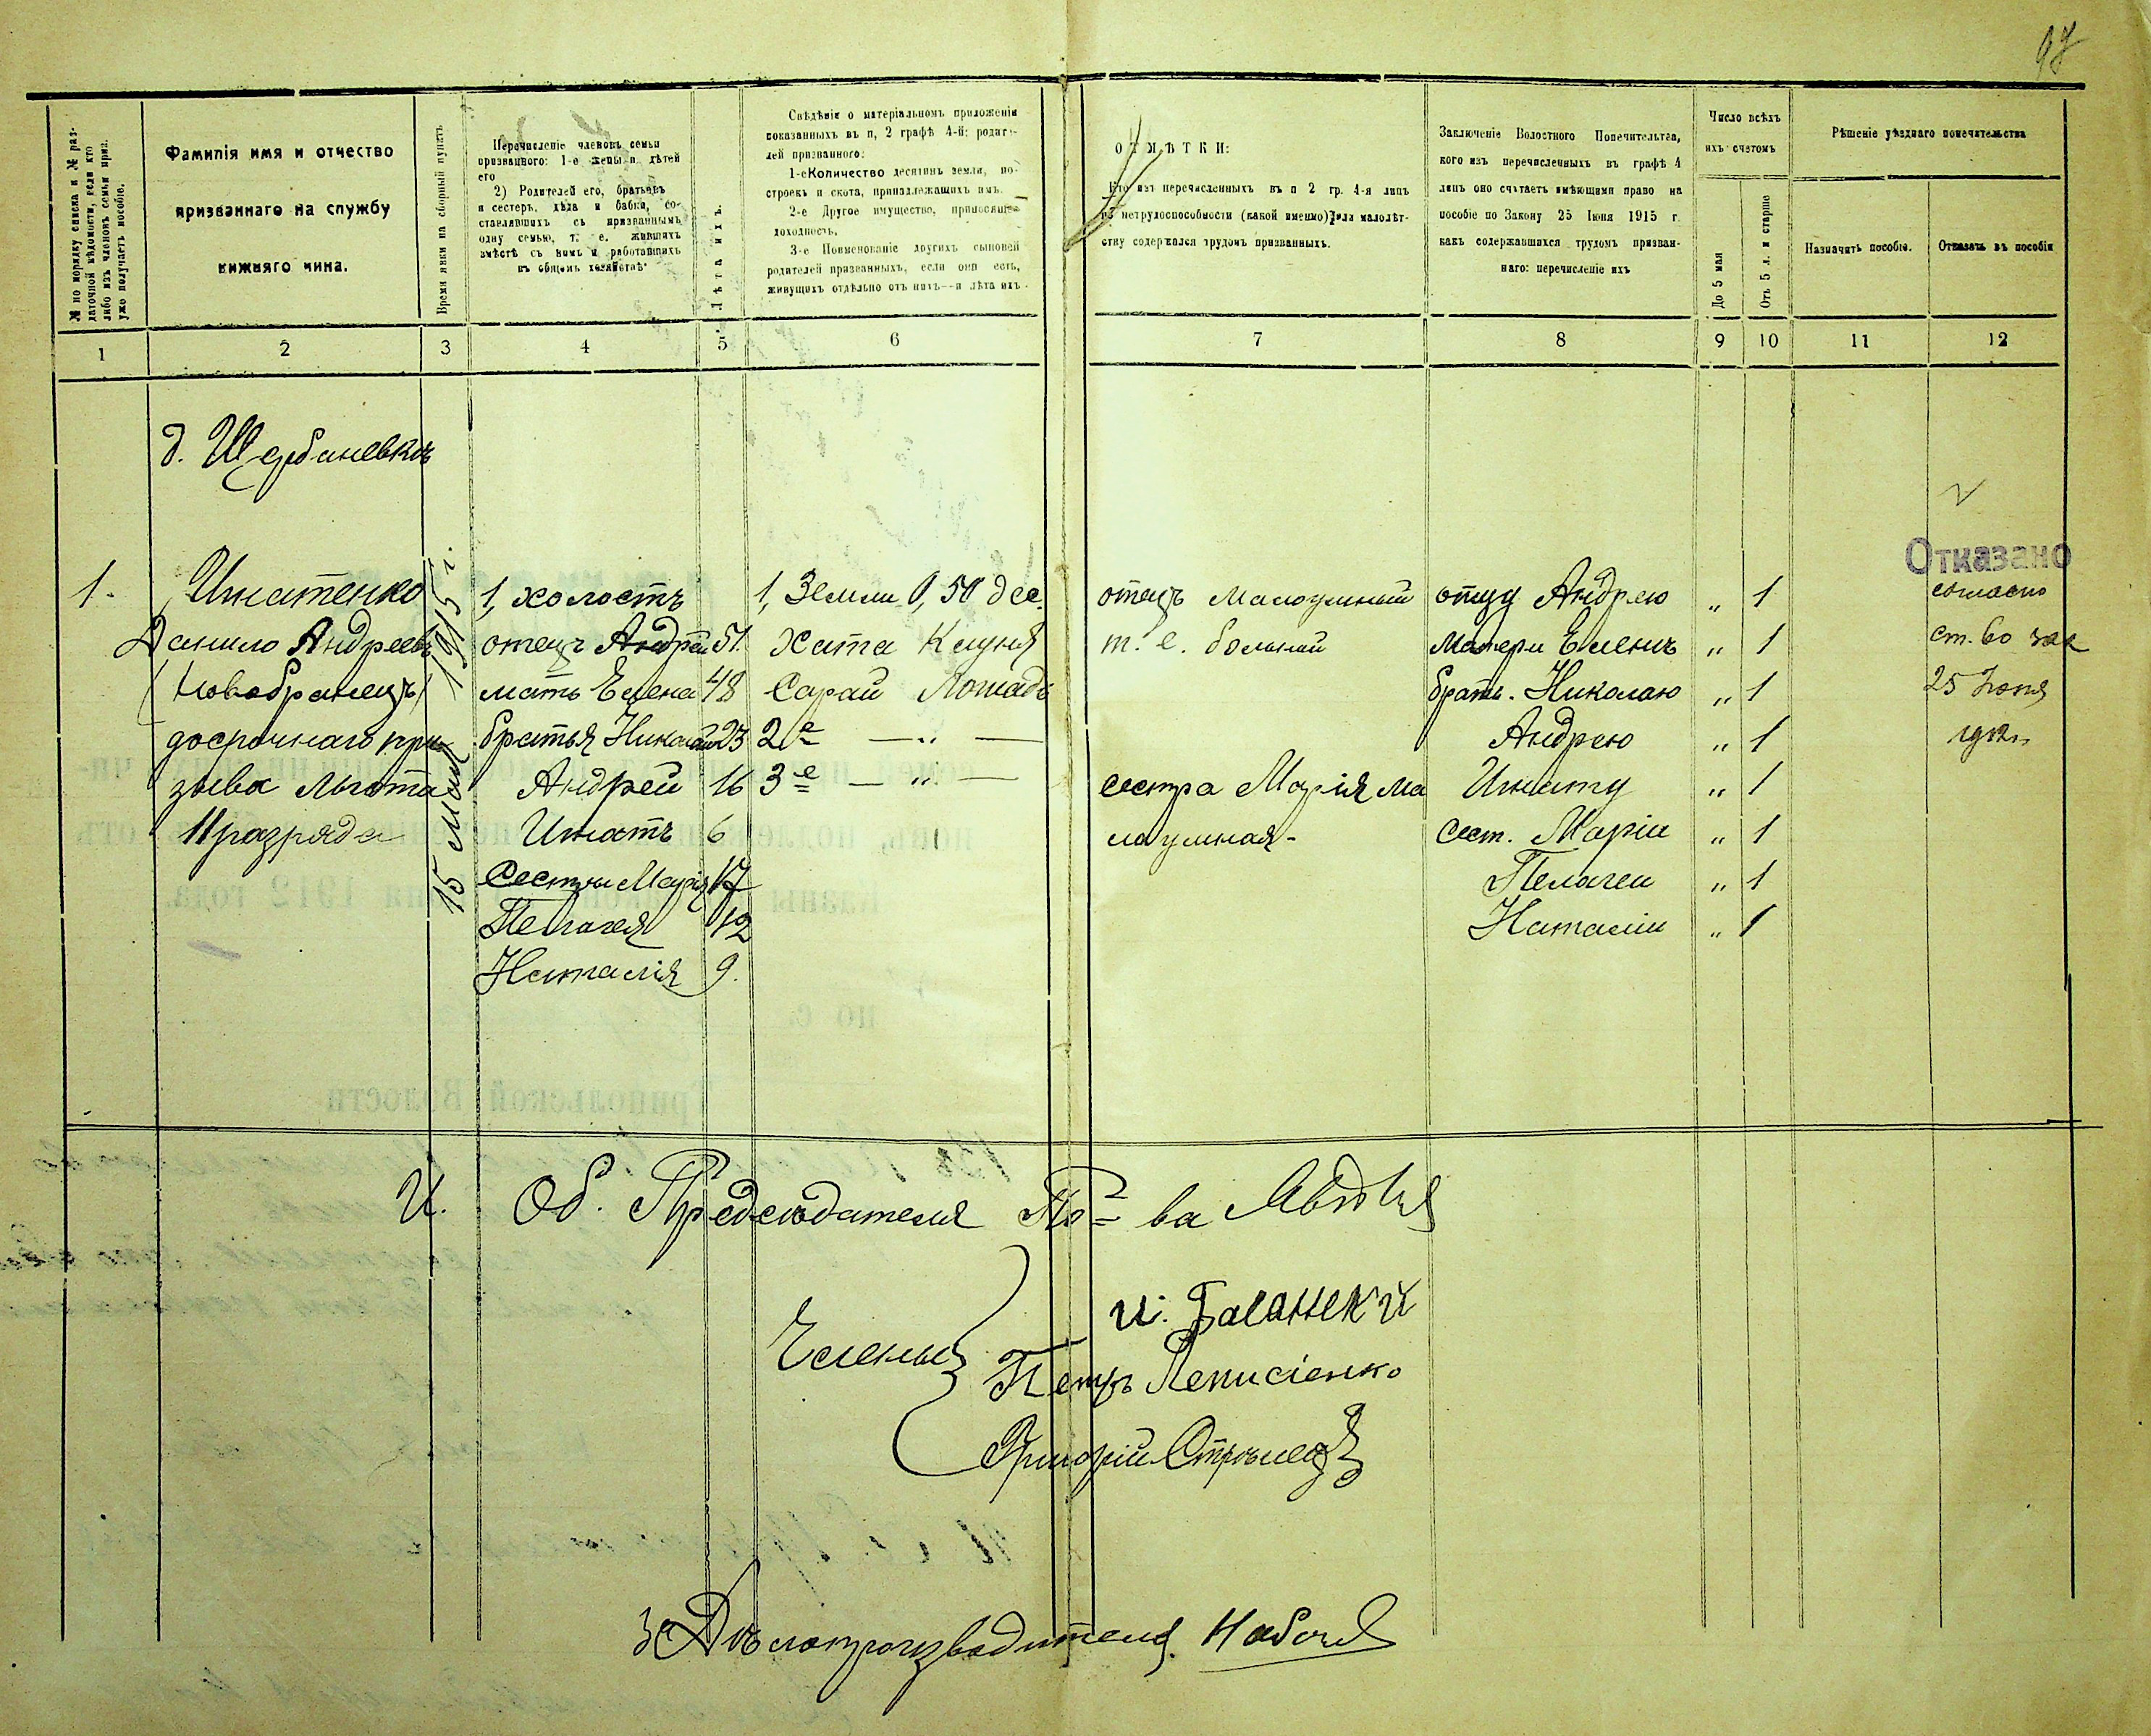 98
№ по порядку списка и № раз-
даточной вѣдомости, если кто
либо изъ членовъ семьи приз.
уже получаетъ пособіе.
Фамилія имя и отчество
призваннаго на службу
нижняго чина.
Время явки на сборный пунктъ
Перечисленіе членовъ семьи
призваннаго: 1-е жены и дѣтей
его
2) Родителей его, братьевъ
и сестеръ, дѣда и бабки, со-
ставлявшихъ съ призваннымъ
одну семью, т. е. жившихъ
вмѣстѣ съ нимъ и работавшихъ
въ общемъ хозяйствѣ
Лѣта ихъ.
Свѣдѣнія о матеріальномъ приложеніи
показанныхъ въ п, 2 графѣ 4-й: родите-
лей призваннаго:
1-е Количество десятинъ земли, по-
строекъ и скота, принадлежащихъ имъ.
2-е Другое имущество, приносящее
доходность.
3-е Поименованіе другихъ сыновей
родителей призванныхъ, если они есть,
живущихъ отдѣльно отъ нихъ--и лѣта ихъ.
ОТМѢТКИ:
Кто изъ перечисленныхъ въ п 2 гр. 4-я лицъ
по нетрудоспособности (какой именно) или малолѣт-
ству содержался трудомъ призванныхъ.
Заключеніе Волостного Попечительтва,
кого изъ перечисленныхъ въ графѣ 4
лицъ оно считаетъ имѣющими право на
пособіе по Закону 25 Іюня 1915 г
какъ содержавшихся трудомъ призван-
наго: перечисленіе ихъ
Число всѣхъ
ихъ счетомъ
До 5 мая
Отъ 5 л. и старше
Рѣшеніе уѣзднаго попечительства
Назначить пособіе.
Отказать въ пособіи
1 2 3 4 5 6 7 8 9 10 11 12
д. Щербаневкъ
1. Игнатенко
Данило Андреевъ
(новобранецъ)
досрочнаго при-
зыва льгота
II разряда
15 мая 1915 г.
1, холостъ
отецъ Андрей 51.
мать Елена 48
братья Николай 23
Андрей 16
Игнатъ 6
Сестры Марія 17
Пелагея 12
Наталія 9.
1, Земли 0,50 дес.
Хата Клуня
Сарай Лошадь
2е — „ —
3е — „ —
отецъ малоумный
т. е. больной
сестра Марія ма
лоумная-
отцу Андрею „ 1
матери Еленѣ „ 1
брать. Николаю „ 1
Андрею „ 1
Игнату „ 1
Сест. Маріи „ 1
Пелагеи „ 1
Наталіи „ 1
Отказано
согласно
ст. 60 зак
25 Іюня
1912 г.
И. Об. Предсѣдателя По-ва
Члены
Петръ
Григорій Стрѣлецъ
За Дѣлопроизводителя